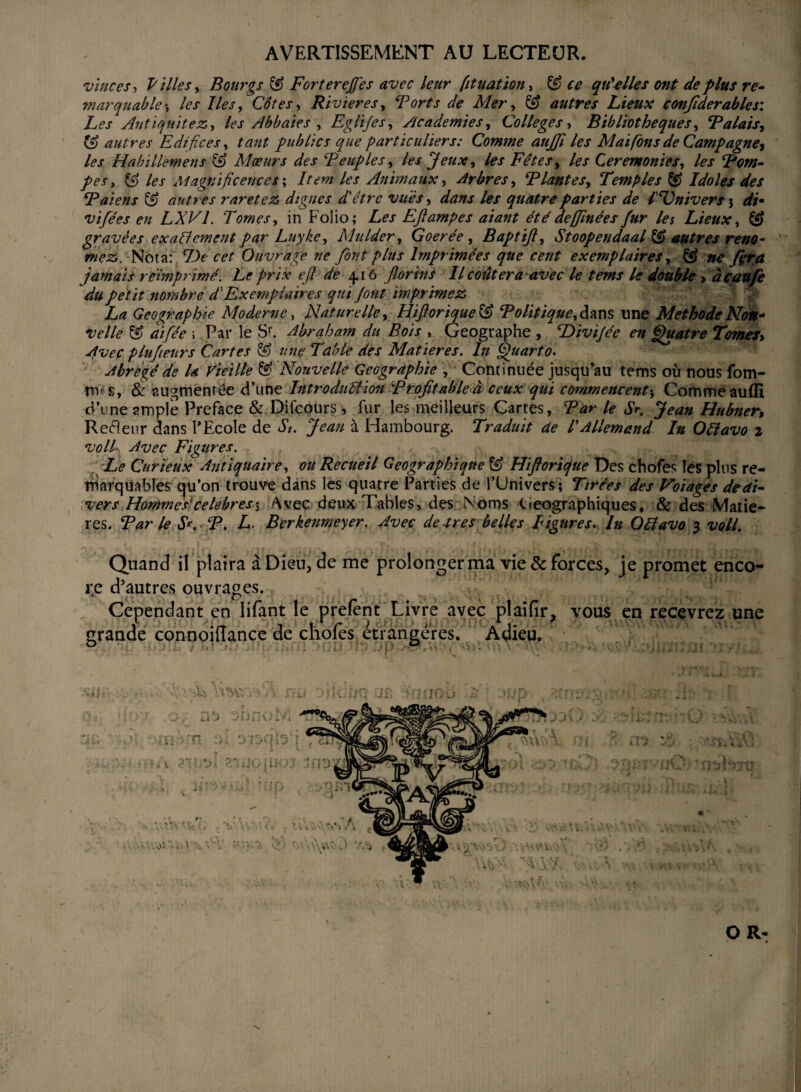 AVERTISSEMENT AU LECTEUR.
vinces, Villes, Bourgs & Forteresses avec leur situation, & ce qu'elles ont de plus re-
marquable; les Iles, Côtes, Rivieres, Ports de Mer, & autres Lieux considerables:
Les Antiquitez, les Abbaies, Eglises, Academies, Colleges, Bibliotheques, Palais,
& autres Edifices, tant publics que particuliers: Comme aussi les Maisons de Campagne,
les Habillemens & Mœurs des Peuples, les Jeux, les Fêtes, les Ceremonies, les Pom-
pes, & les Magnificences; Item les Animaux, Arbres, Plantes, Temples & Idoles des
Paiens & autres raretez dignes d'être vuës, dans les quatre parties de l'Univers; di-
visées en LXVI. Tomes, in Folio; Les Estampes aiant été dessinées sur les Lieux, &
gravées exactement par Luyke, Mulder, Goerée, Baptist, Stoopendaal & autres reno-
mez. Nota: De cet Ouvrage ne sont plus Imprimées que cent exemplaires, & ne sera
jamais reïmprimé. Le prix est de 416 florins Il coûtera avec le tems le double, à cause
du petit nombre d'Exemplaires qui sont imprimez
La Geographie Moderne, Naturelle, Historique & Politique, dans une Methode Nou-
velle & aisée; Par le Sr. Abraham du Bois, Geographe, Divisée en Quatre Tomes,
Avec plusieurs Cartes & une Table des Matieres. In Quarto.
Abregé de la Vieille & Nouvelle Geographie, Continuée jusqu'au tems où nous som-
mes, & augmentée d'une Introduction Profitable à ceux qui commencent; Comme aussi
d'une ample Preface & Discours, sur les meilleurs Cartes, Par le Sr. Jean Hubner,
Recteur dans l'Ecole de St. Jean à Hambourg. Traduit de l'Allemand In Octavo 2
voll. Avec Figures.
Le Curieux Antiquaire, ou Recueil Geographique & Historique Des choses les plus re-
marquables qu'on trouve dans les quatre Parties de l'Univers; Tirées des Voiages de di-
vers Hommes celebres; Avec deux Tables, des Noms Geographiques, & des Matie-
res. Par le Sr. P. L. Berkenmeyer. Avec de tres belles Figures. In Octavo 3 voll.
Quand il plaira à Dieu, de me prolonger ma vie & forces, je promet enco-
re d'autres ouvrages.
Cependant en lisant le present Livre avec plaisir, vous en recevrez une
grande connoissance de choses étrangéres. Adieu.
P V
A
OR-